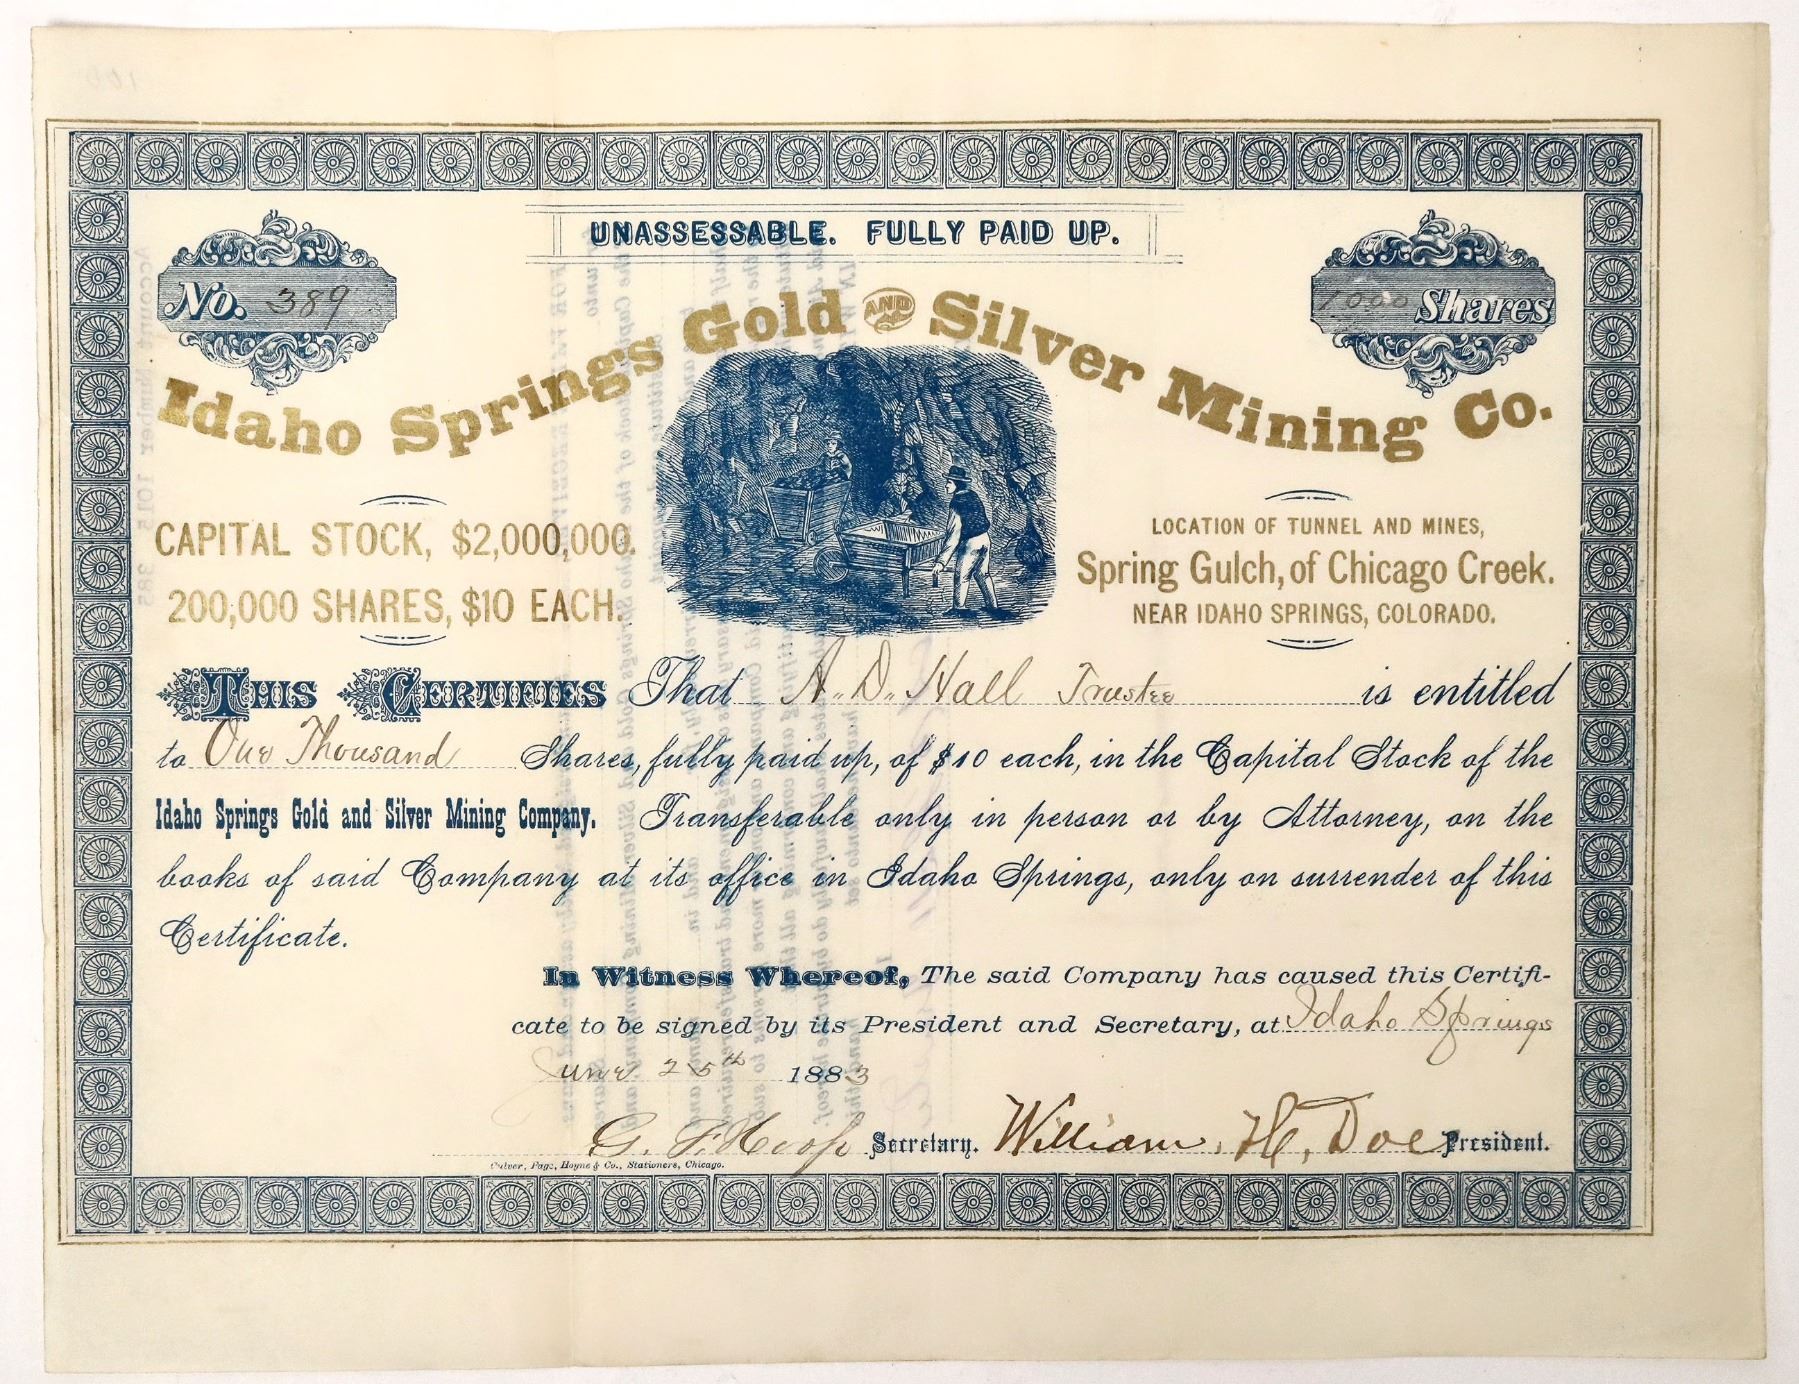 UNASSESSABLE. FULLY PAID UP.
No. 389
1000 Shares
Idaho Springs Gold AND Silver Mining Co.
CAPITAL STOCK, $2,000,000.
200,000 SHARES, $10 EACH.
LOCATION OF TUNNEL AND MINES,
Spring Gulch, of Chicago Creek.
NEAR IDAHO SPRINGS, COLORADO.
THIS CERTIFIES That A. D. Hall Trustee is entitled
to One Thousand Shares, fully paid up, of $10 each, in the Capital Stock of the
Idaho Springs Gold and Silver Mining Company. Transferable only in person or by Attorney, on the
books of said Company at its office in Idaho Springs, only on surrender of this
Certificate.
In Witness Whereof, The said Company has caused this Certifi-
cate to be signed by its President and Secretary, at Idaho Springs
June 25th 1883
G. F. Secretary. William. H. Doe President.
Culver, Page, Hoyne & Co., Stationers, Chicago.